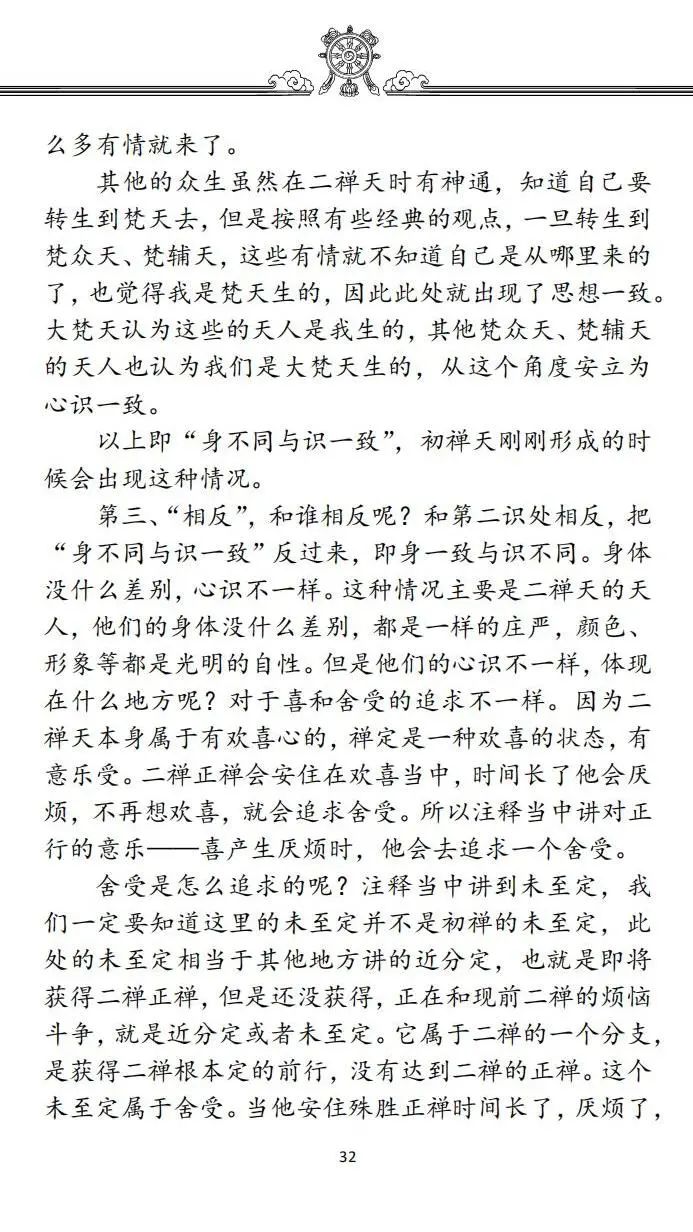 么多有情就来了。
其他的众生虽然在二禅天时有神通，知道自己要
转生到梵天去，但是按照有些经典的观点，一旦转生到
梵众天、梵辅天，这些有情就不知道自己是从哪里来的
了，也觉得我是梵天生的，因此此处就出现了思想一致。
大梵天认为这些的天人是我生的，其他梵众天、梵辅天
的天人也认为我们是大梵天生的，从这个角度安立为
心识一致。
以上即“身不同与识一致”，初禅天刚刚形成的时
候会出现这种情况。
第三、“相反”，和谁相反呢？和第二识处相反，把
“身不同与识一致”反过来，即身一致与识不同。身体
没什么差别，心识不一样。这种情况主要是二禅天的天
人，他们的身体没什么差别，都是一样的庄严，颜色、
形象等都是光明的自性。但是他们的心识不一样，体现
在什么地方呢？对于喜和舍受的追求不一样。因为二
禅天本身属于有欢喜心的，禅定是一种欢喜的状态，有
意乐受。二禅正禅会安住在欢喜当中，时间长了他会厌
烦，不再想欢喜，就会追求舍受。所以注释当中讲对正
行的意乐——喜产生厌烦时，他会去追求一个舍受。
舍受是怎么追求的呢？注释当中讲到未至定，我
们一定要知道这里的未至定并不是初禅的未至定，此
处的未至定相当于其他地方讲的近分定，也就是即将
获得二禅正禅，但是还没获得，正在和现前二禅的烦恼
斗争，就是近分定或者未至定。它属于二禅的一个分支，
是获得二禅根本定的前行，没有达到二禅的正禅。这个
未至定属于舍受。当他安住殊胜正禅时间长了，厌烦了，
32